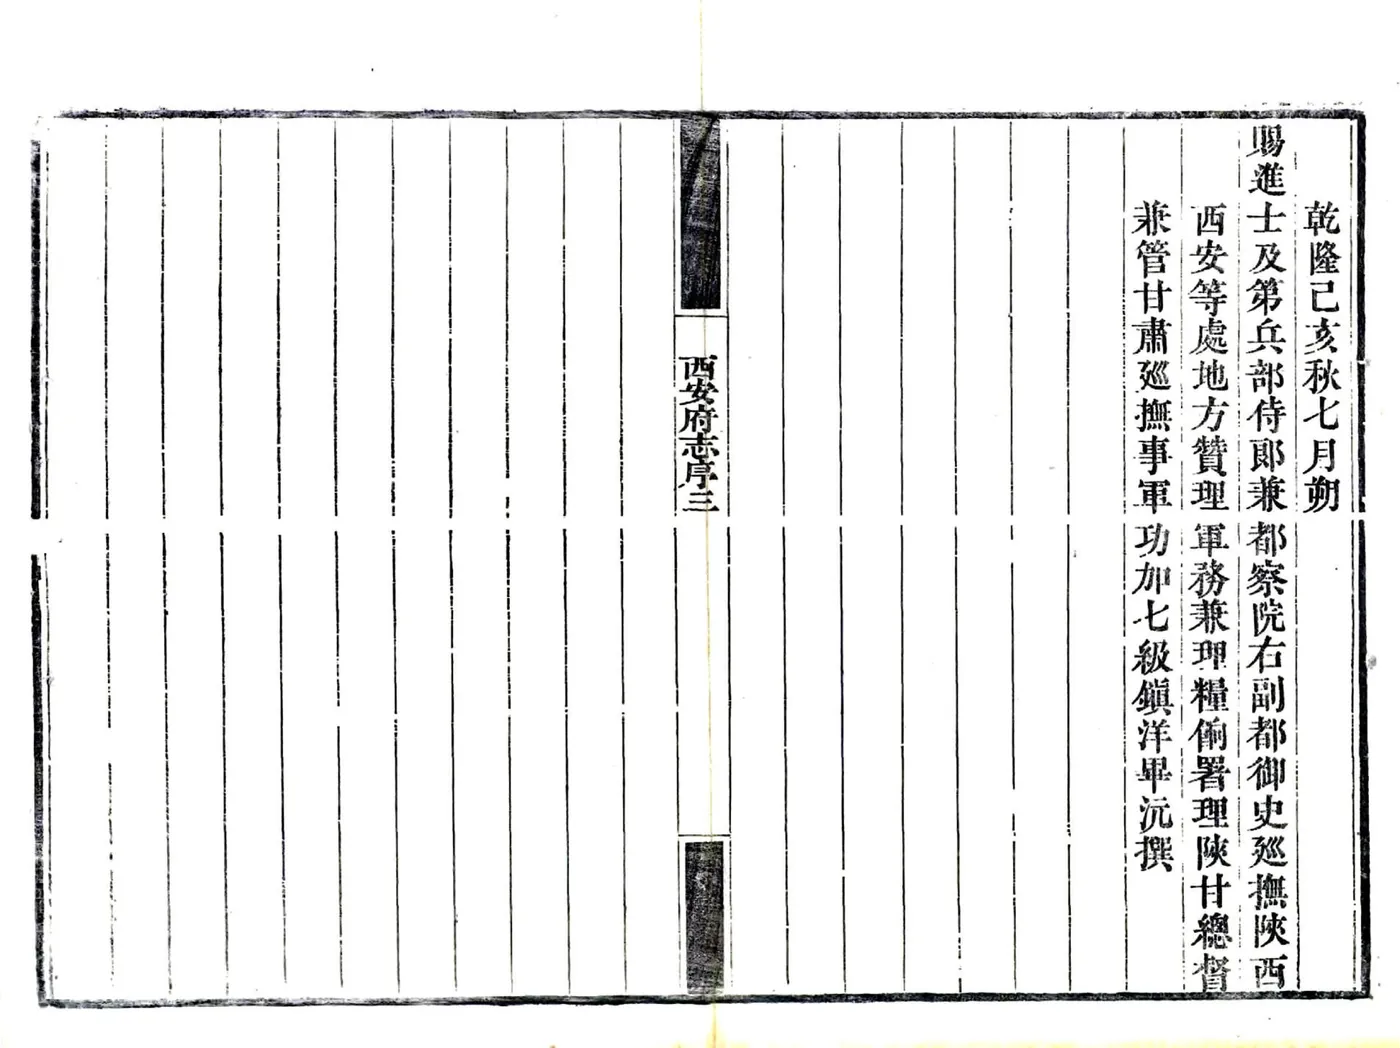 乾隆己亥秋七月朔
賜進士及第兵部侍郎兼都察院右副都御史廵撫陝西
西安等處地方贊理軍務兼理糧餉署理陝甘總督
兼管甘肅廵撫事軍功加七級鎭洋畢沅撰
西安府志序三